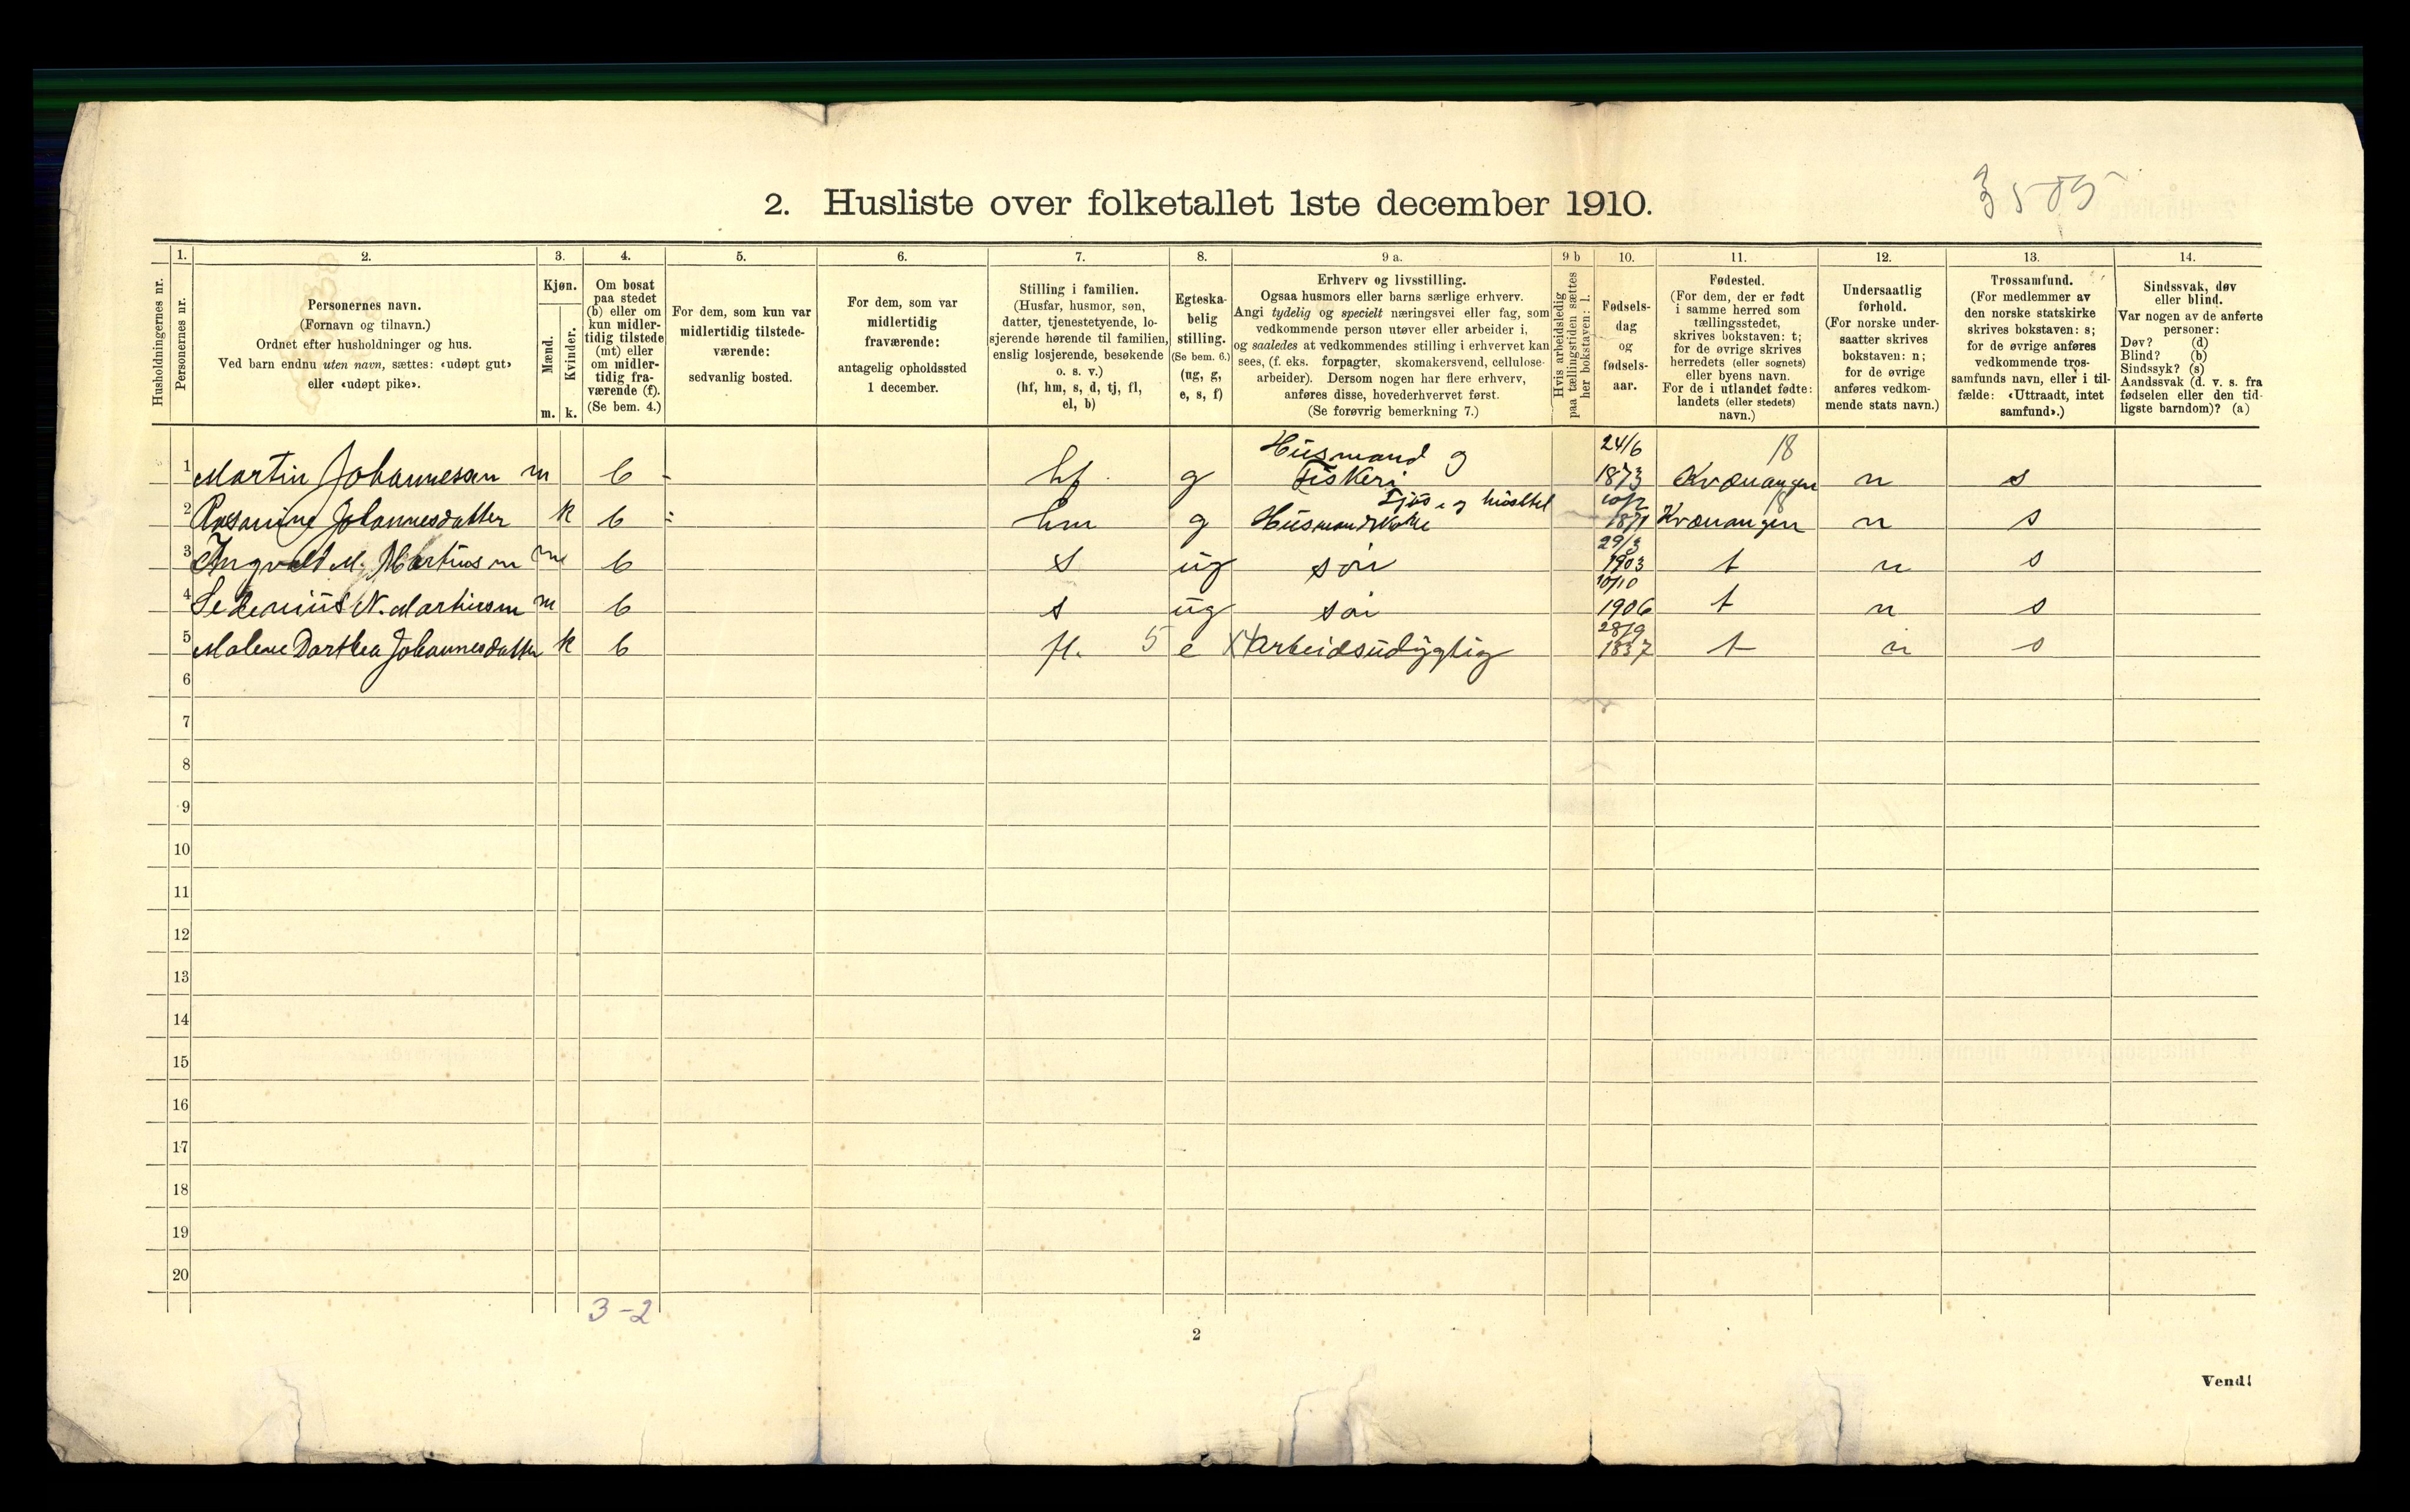 3505
2. Husliste over folketallet 1ste december 1910.
Husholdningernes nr.
1.
Personernes nr.
2.
Personernes navn.
(Fornavn og tilnavn.)
Ordnet efter husholdninger og hus.
Ved barn endnu uten navn, sættes: «udøpt gut»
eller «udøpt pike».
3.
Kjøn.
Mænd.
Kvinder.
m. k.
4.
Om bosat
paa stedet
(b) eller om
kun midler-
tidig tilstede
(mt) eller
om midler-
tidig fra-
værende (f).
(Se bem. 4.)
5.
For dem, som kun var
midlertidig tilstede-
værende:
sedvanlig bosted.
6.
For dem, som var
midlertidig
fraværende:
antagelig opholdssted
1 december.
7.
Stilling i familien.
(Husfar, husmor, søn,
datter, tjenestetyende, lo-
sjerende hørende til familien,
enslig losjerende, besøkende
o. s. v.)
(hf, hm, s, d, tj, fl,
el, b)
8.
Egteska-
belig
stilling.
(Se bem. 6.)
(ug, g,
e, s, f)
9 a.
Erhverv og livsstilling.
Ogsaa husmors eller barns særlige erhverv.
Angi tydelig og specielt næringsvei eller fag, som
vedkommende person utøver eller arbeider i,
og saaledes at vedkommendes stilling i erhvervet kan
sees, (f. eks. forpagter, skomakersvend, cellulose-
arbeider). Dersom nogen har flere erhverv,
anføres disse, hovederhvervet først.
(Se forøvrig bemerkning 7.)
9 b
Hvis arbeidsledig
paa tællingstiden sættes
her bokstaven: l.
10.
Fødsels-
dag
og
fødsels-
aar.
11.
Fødested.
(For dem, der er født
i samme herred som
tællingsstedet,
skrives bokstaven: t;
for de øvrige skrives
herredets (eller sognets)
eller byens navn.
For de i utlandet fødte:
landets (eller stedets)
navn.)
12.
Undersaatlig
forhold.
(For norske under-
saatter skrives
bokstaven: n;
for de øvrige
anføres vedkom-
mende stats navn.)
13.
Trossamfund.
(For medlemmer av
den norske statskirke
skrives bokstaven: s;
for de øvrige anføres
vedkommende tros-
samfunds navn, eller i til-
fælde: «Uttraadt, intet
samfund».)
14.
Sindssvak, døv
eller blind.
Var nogen av de anførte
personer:
Døv? (d)
Blind? (b)
Sindssyk? (s)
Aandssvak (d. v. s. fra
fødselen eller den tid-
ligste barndom)? (a)
Husmand og 24/6 18
1 Martin Johannessen m b - hf. g Fiskeri 1873 Kvænangen n s
Fjøs og 18
2 Johannesdatter k b hm g Husmandskone 1871 Kvænangen n s
29/3
3 Ingvald M. Martinsen m b s ug søn 1903 t n s
10/10
4 N. Martinsen m b s ug søn 1906 t n s
28/9
5 Malene Dorthea Johannesdatter k b fl. 5 e X Arbeidsudygtig 1837 t n s
6
7
8
9
10
11
12
13
14
15
16
17
18
19
20
3-2
2
Vend!